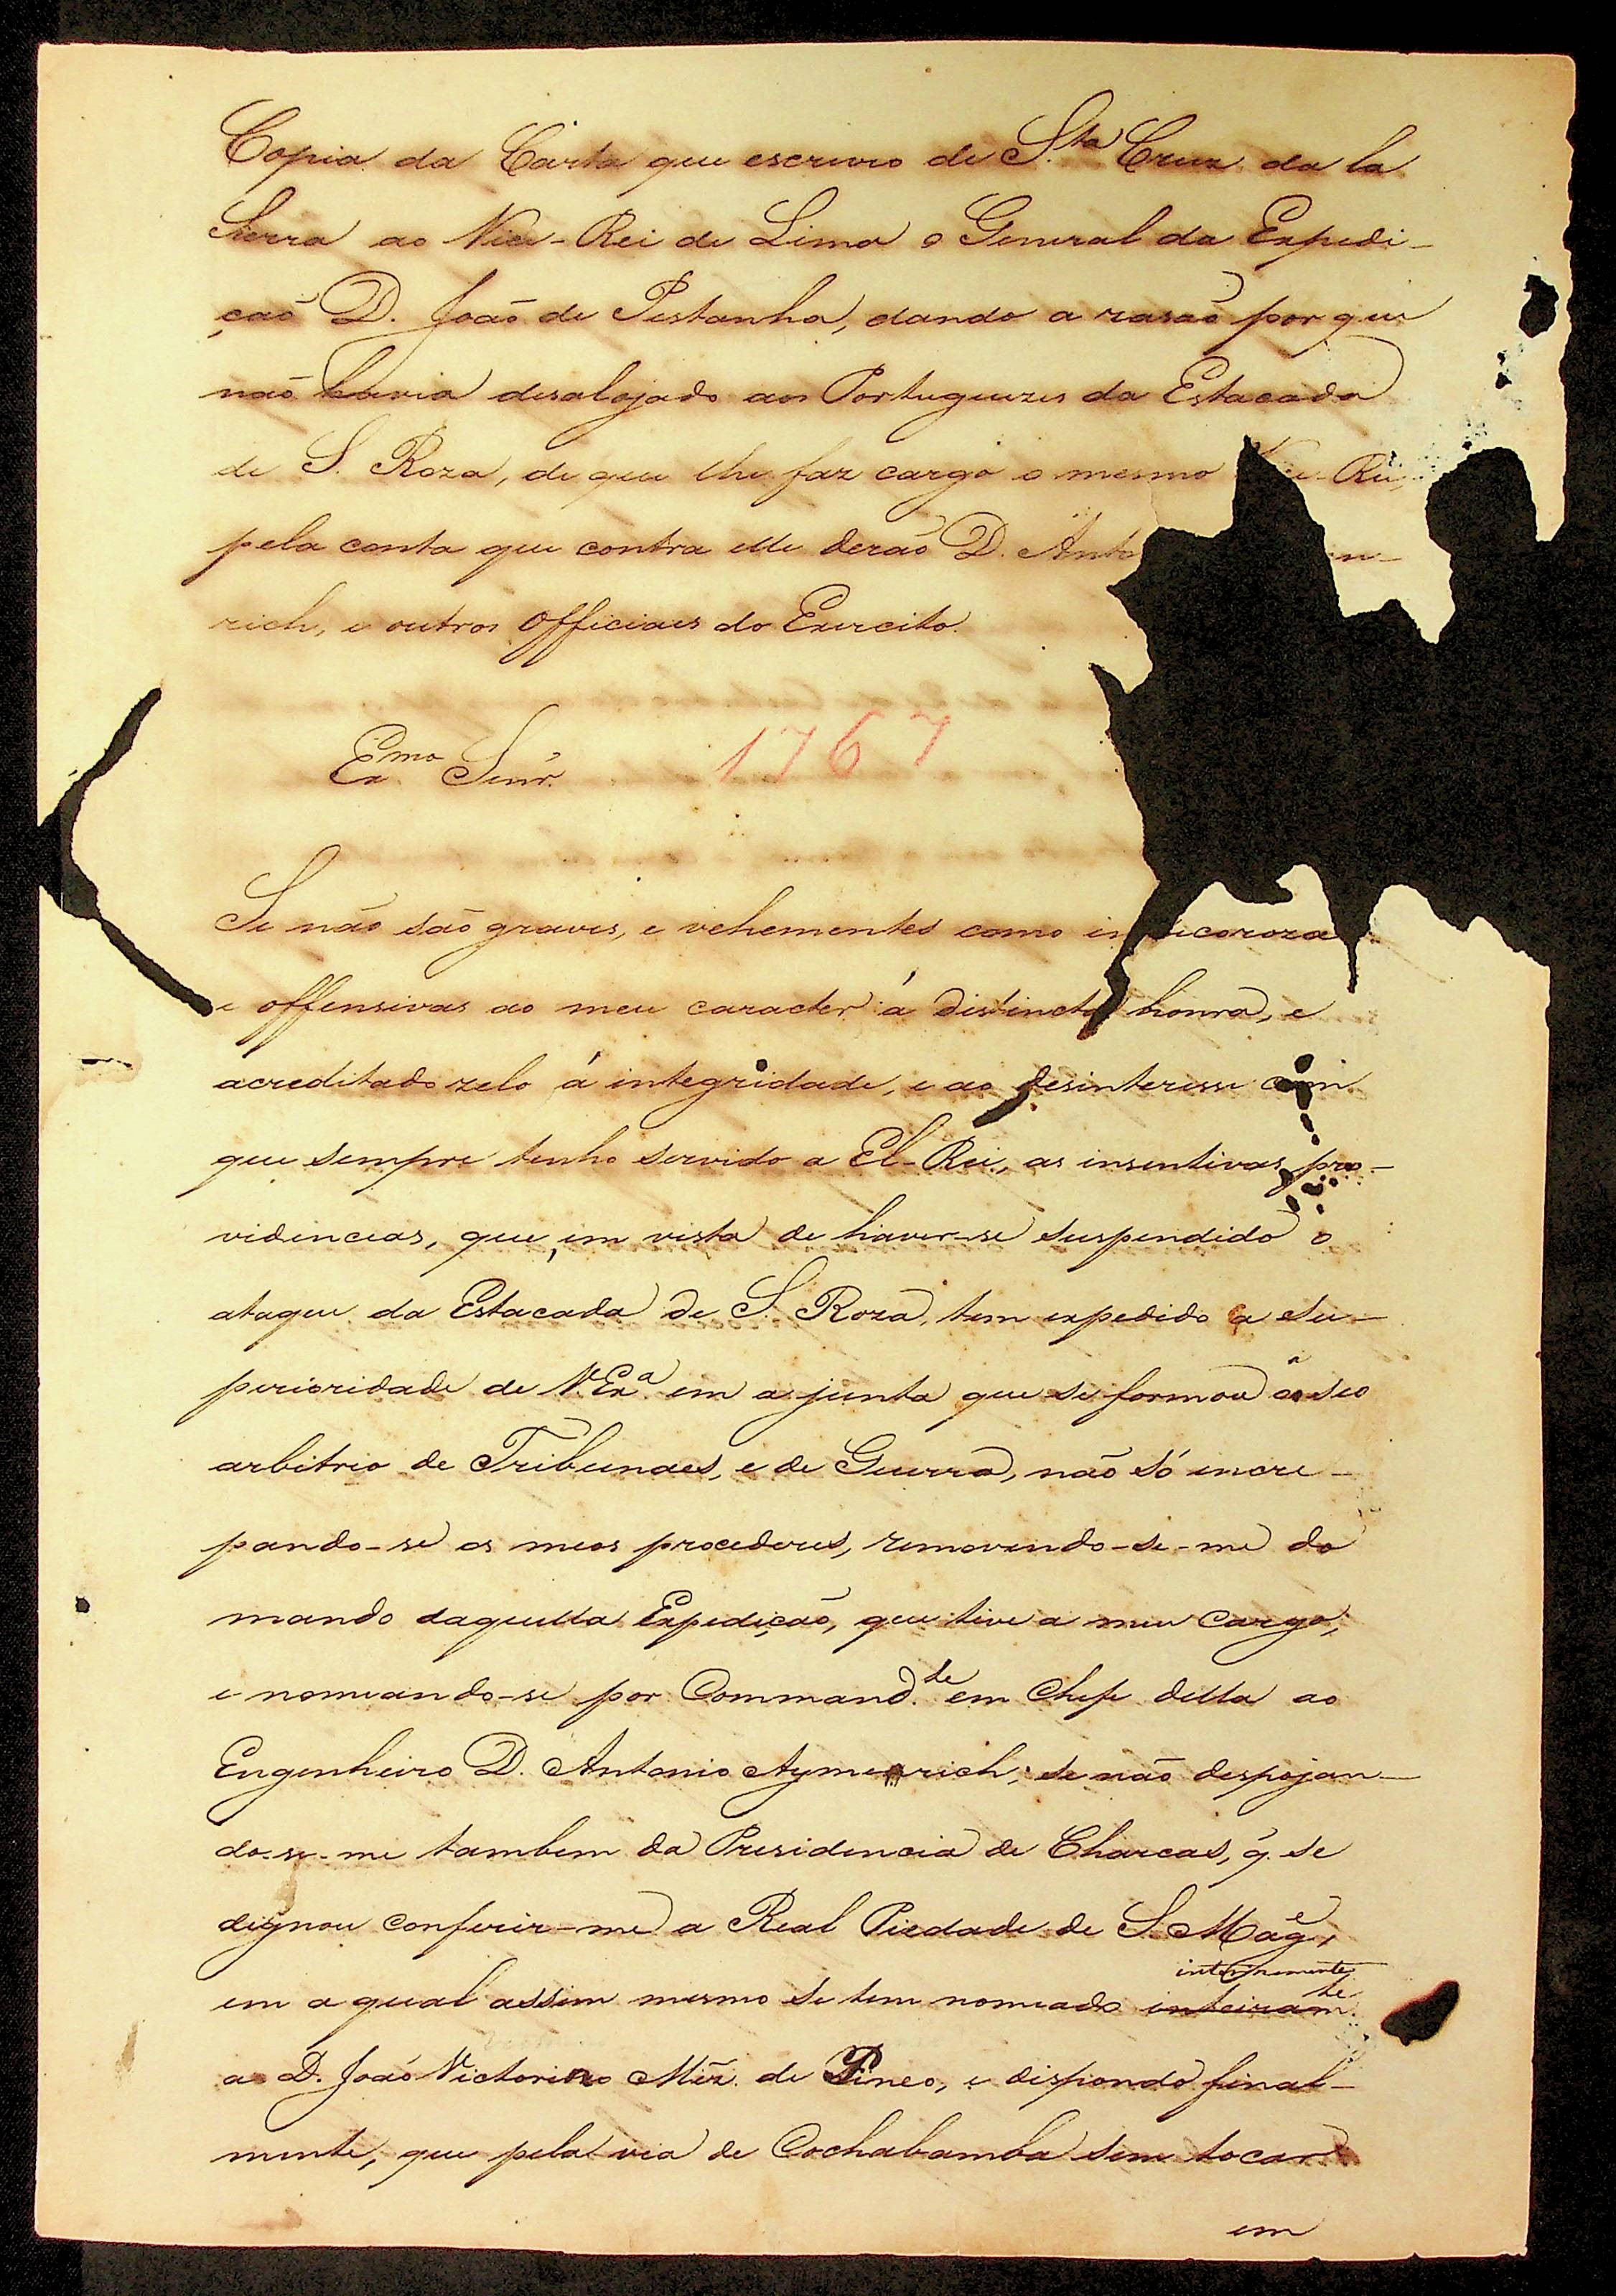 Copia da Carta que escrivio de S.ta Cruz da la
Sierra ao Vice-Rei de Lima o General da Expedi-
ção D. João de Pestanha, dando a rasão por que
não havia desalojado aos Portuguezes da Estacada
de S. Roza, de que lhe faz cargo o mesmo Rei,
pela conta que contra elle derão D. Anto n-
rich, e outros Officiaes do Exercito.
Ex.mo Senr. 1767
Se não são graves, e vehementes como in icoroza
e offensivas ao meu caracter á distincta honra, e
acreditado zelo á integridade, e ao desinteresse com
que sempre tenho servido a El-Rei, as insentivas pro-
videncias, que, em vista de haver-se suspendido o
ataque da Estacada de S. Roza, tem expedido a su-
perioridade de V. Ex.a em a junta que se formou ao seo
arbitrio de Tribunaes, e de Guerra, não só incre-
pando-se os meos procederes, removendo-se-me do
mando daquella Expedição, que tive a meu cargo,
e nomeando-se por Command.te em Chefe della ao
Engenheiro D. Antonio Aymerich; se não despojan-
do-se-me tambem da Presidencia de Charcas, q. se
dignou conferir-me a Real Piedade de S. Mag.e,
interinamente
em a qual assim mesmo se tem nomeado inteiram.te
a D. João Victorino Miz. de Tineo, e dispondo final-
mente, que pela via de Cochabamba sem tocar
em